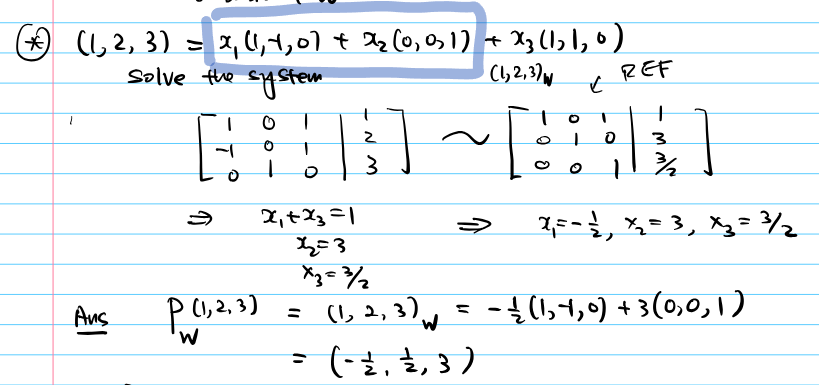 (*) (1, 2, 3) = x₁(1,-1,0) + x₂(0,0,1) + x₃(1,1,0)
solve the system (1,2,3)_W ↙ REF
[ 1 0 1 | 1 ; -1 0 1 | 2 ; 0 1 0 | 3 ] ~ [ 1 0 1 | 1 ; 0 1 0 | 3 ; 0 0 1 | 3/2 ]
⇒ x₁+x₃=1 ⇒ x₁=-1/2, x₂=3, x₃=3/2
x₂=3
x₃=3/2
Ans P_W (1,2,3) = (1, 2, 3)_W = -1/2(1,-1,0) + 3(0,0,1)
= (-1/2, 1/2, 3)